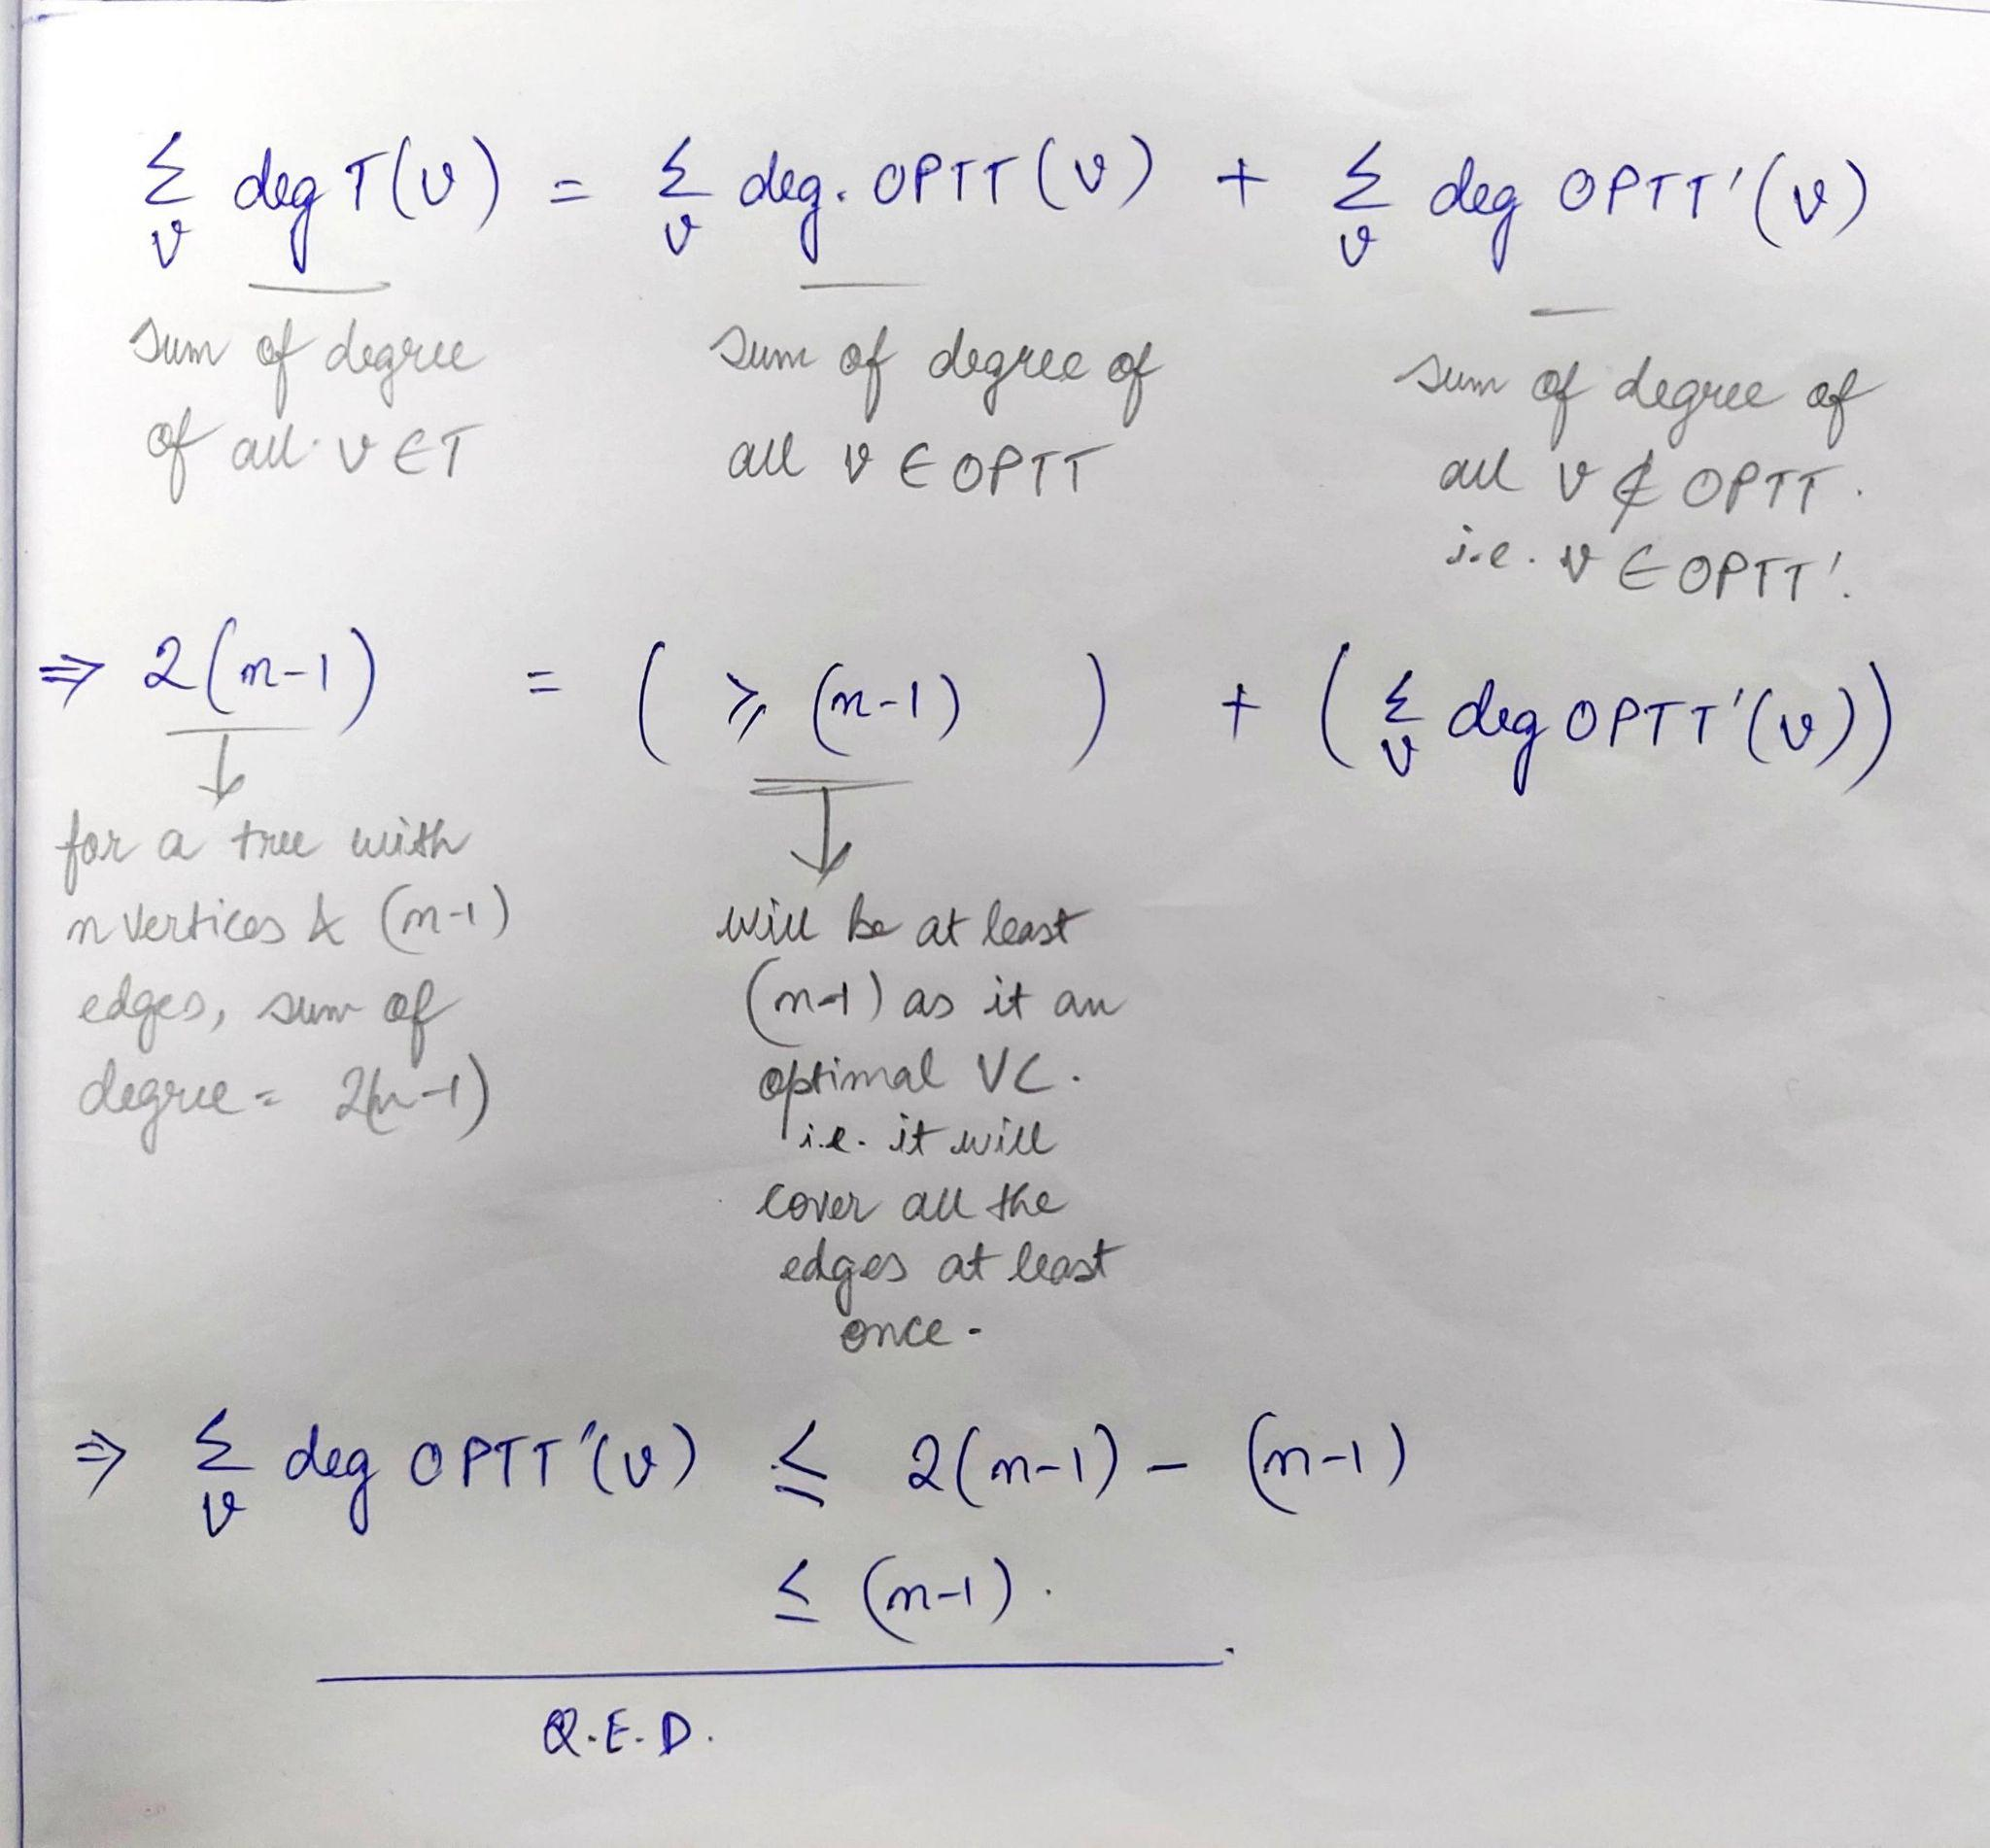 Σ deg T(v) = Σ deg. OPTT (v) + Σ deg OPTT'(v)
v v v
sum of degree
of all v ∈ T
sum of degree of
all v ∈ OPTT
sum of degree of
all v ∉ OPTT.
i.e. v ∈ OPTT'.
⇒ 2(n-1) = ( ≥ (n-1) ) + ( Σ deg OPTT'(v))
v
↓
for a tree with
n vertices & (n-1)
edges, sum of
degree = 2(n-1)
↓
will be at least
(n-1) as it an
optimal VC.
i.e. it will
cover all the
edges at least
once.
⇒ Σ deg OPTT'(v) ≤ 2(n-1) - (n-1)
v
≤ (n-1).
Q.E.D.